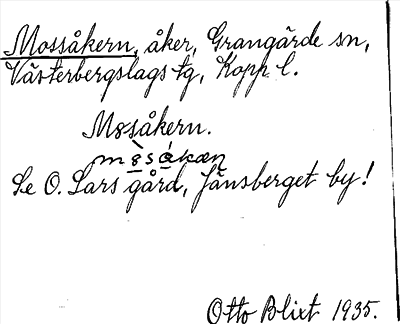 Mossåkern, åker, Grangärde sn,
Västerbergslags tg, Kopp l.
Mɞsåkern.
mɞ̀såkæn
Se O. Lars gård, Jänsberget by!
Otto Blixt 1935.